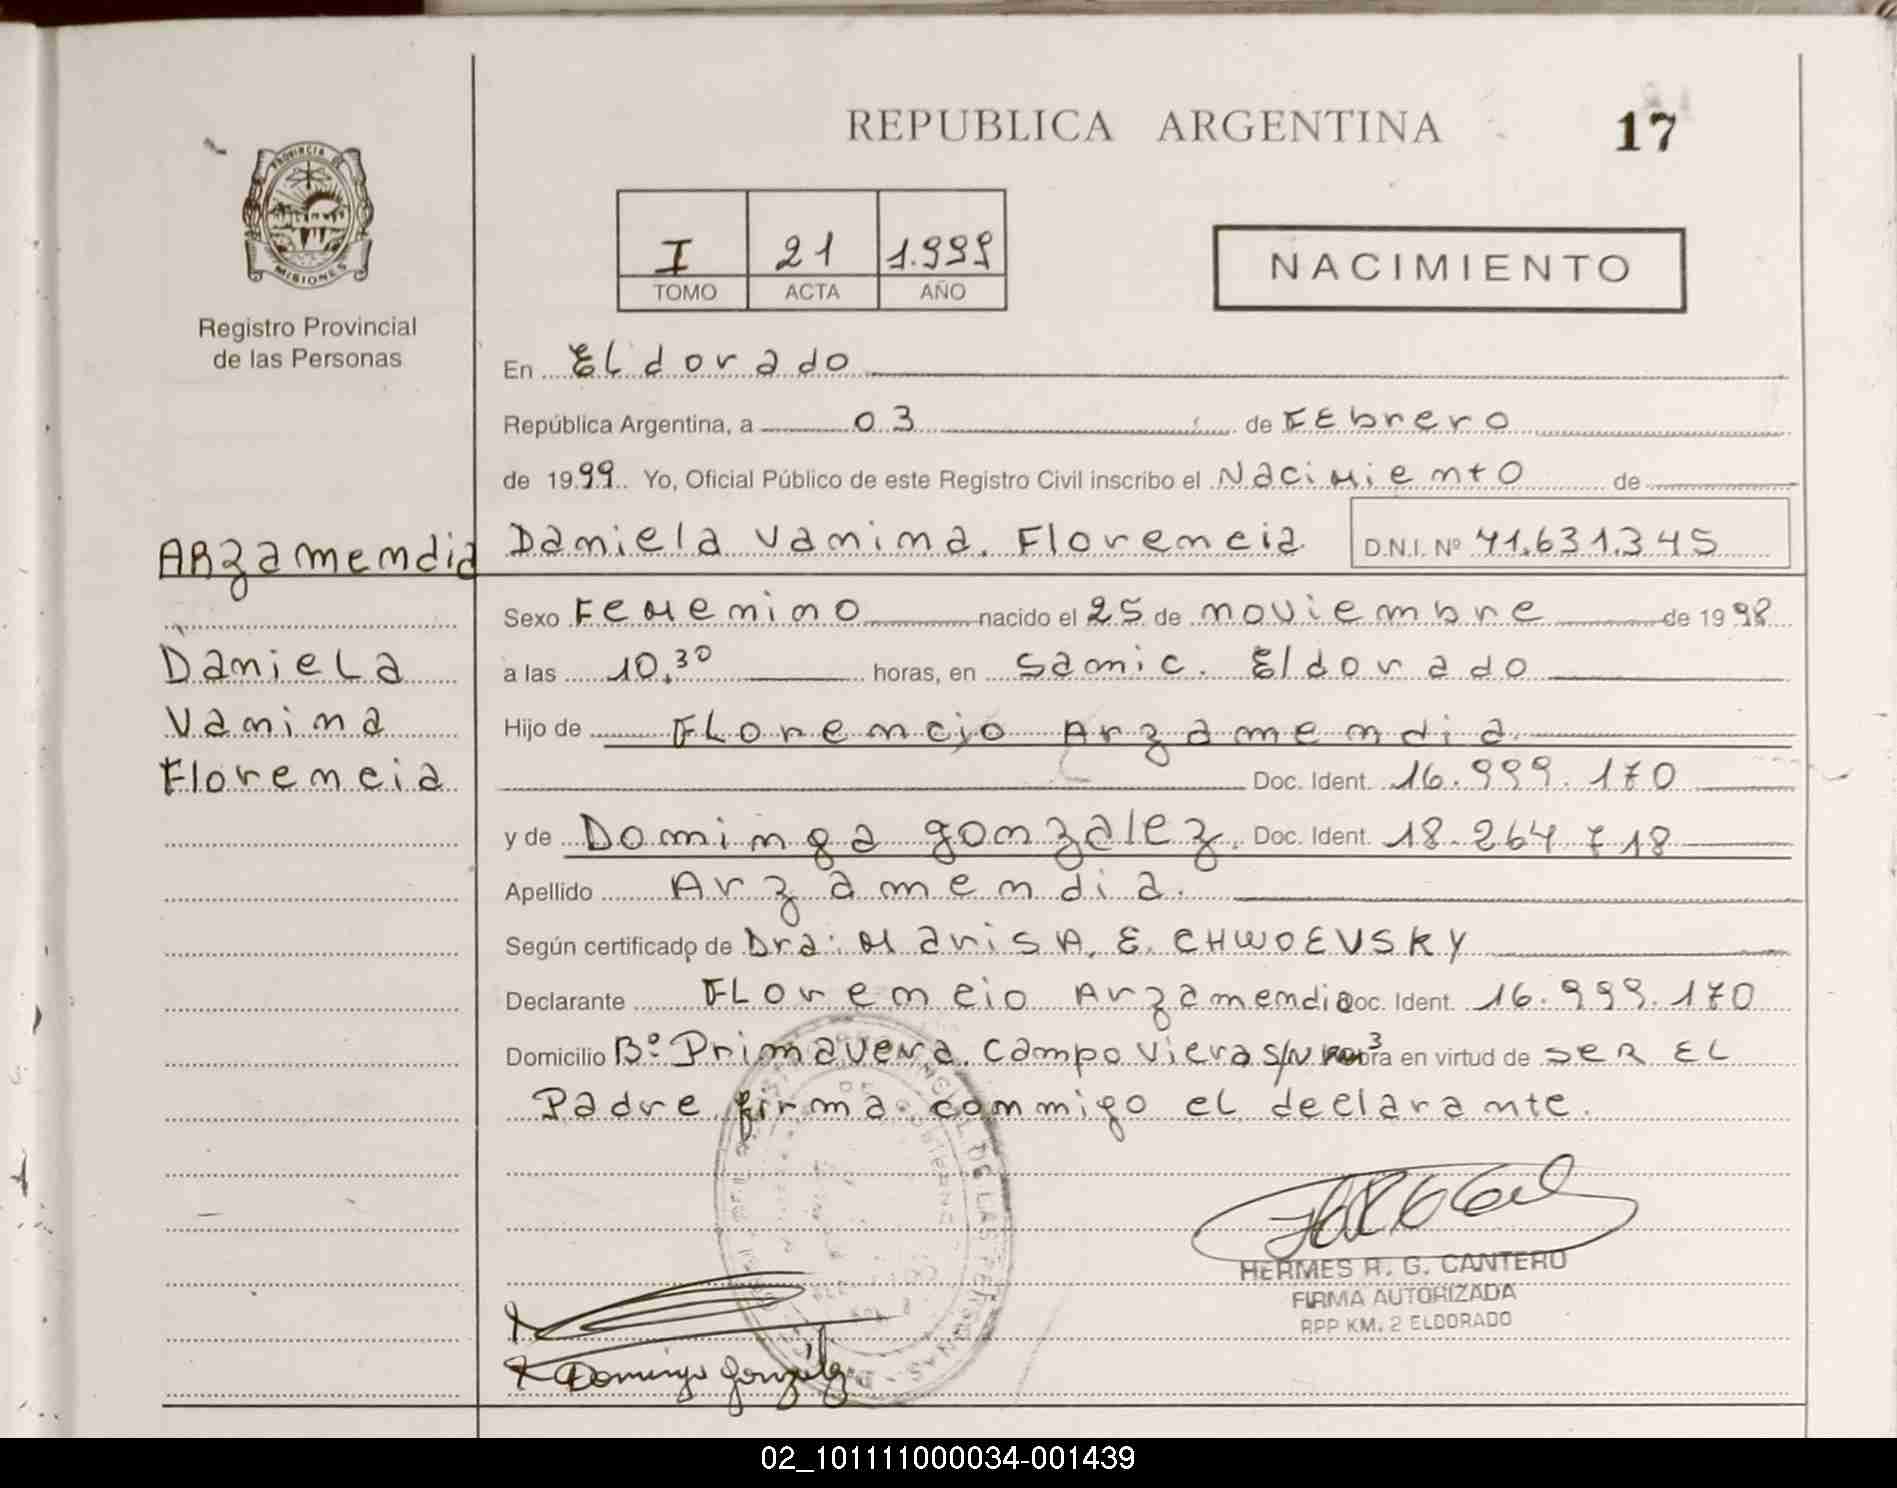 REPUBLICA ARGENTINA
17
PROVINCIA DE
MISIONES
Registro Provincial
de las Personas
I 21 1.999
TOMO ACTA AÑO
NACIMIENTO
En Eldorado
República Argentina, a 03 de FEbrero
de 1999 Yo, Oficial Público de este Registro Civil inscribo el Nacimiento de
ARzamendia Daniela Vanina Florencia D.N.I. Nº 41.631.345
Sexo Femenino nacido el 25 de noviembre de 1998
Daniela a las 10,30 horas, en Samic. Eldorado
Vanina Hijo de Florencio Arzamendia
Florencia Doc. Ident. 16.999.170
y de Dominga gonzalez, Doc. Ident. 18.264 718
Apellido Arzamendia.
Según certificado de Dra: Maris A. E. CHWOEVSKY
Declarante Florencio Arzamendia Doc. Ident. 16.999.170
Domicilio Bº Primavera. Campo Viera s/N en virtud de SER EL
Padre firma conmigo el declarante.
HERMES R. G. CANTERO
FIRMA AUTORIZADA
RPP KM. 2 ELDORADO
02_101111000034-001439